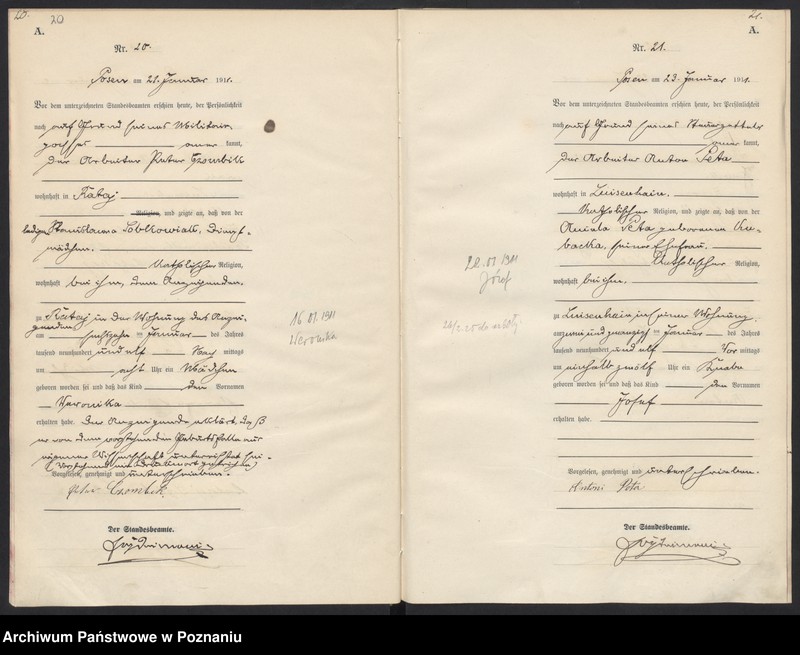 20.
20
A.
Nr. 20.
Posen am 21. Januar 1911.
Vor dem unterzeichneten Standesbeamten erschien heute, der Persönlichkeit
nach auf Grund seines Militär-
passes anerkannt,
der Arbeiter Peter
wohnhaft in Rataj
Religion, und zeigte an, daß von der
ledigen Stanislawa Sobkowiak, Dienst-
mädchen.
katholischer Religion,
wohnhaft bei ihm, dem Anzeigenden.
zu Rataj in der Wohnung des Anzei-
genden
am sechszehn ten Januar des Jahres
tausend neunhundert und elf Nach mittags
um acht Uhr ein Mädchen
geboren worden sei und daß das Kind den Vornamen
Veronika
erhalten habe. Der Anzeigende erklärt, daß
er von dem vorstehenden Geburtsfalle aus
eigener Wissenschaft unterrichtet sei.
Vorgelesen, genehmigt und unterschrieben.
Peter
Der Standesbeamte.
16.01.1911
Weronika
21.
A.
Nr. 21.
Posen am 23. Januar 1911.
Vor dem unterzeichneten Standesbeamten erschien heute, der Persönlichkeit
nach auf Grund seines Steuerzettels
anerkannt,
der Arbeiter Anton Peta
wohnhaft in Luisenhain.
katholischer Religion, und zeigte an, daß von der
Aniela Peta geborenen Ku-
backa, seiner Ehefrau.
katholischer Religion,
wohnhaft bei ihm.
zu Luisenhain in seiner Wohnung.
am zwei und zwanzig ten Januar des Jahres
tausend neunhundert und elf Vor mittags
um einhalb zwölf Uhr ein Knabe
geboren worden sei und daß das Kind den Vornamen
Josef
erhalten habe.
Vorgelesen, genehmigt und unterschrieben.
Antoni Peta
Der Standesbeamte.
22.01.1911
Józef
Archiwum Państwowe w Poznaniu